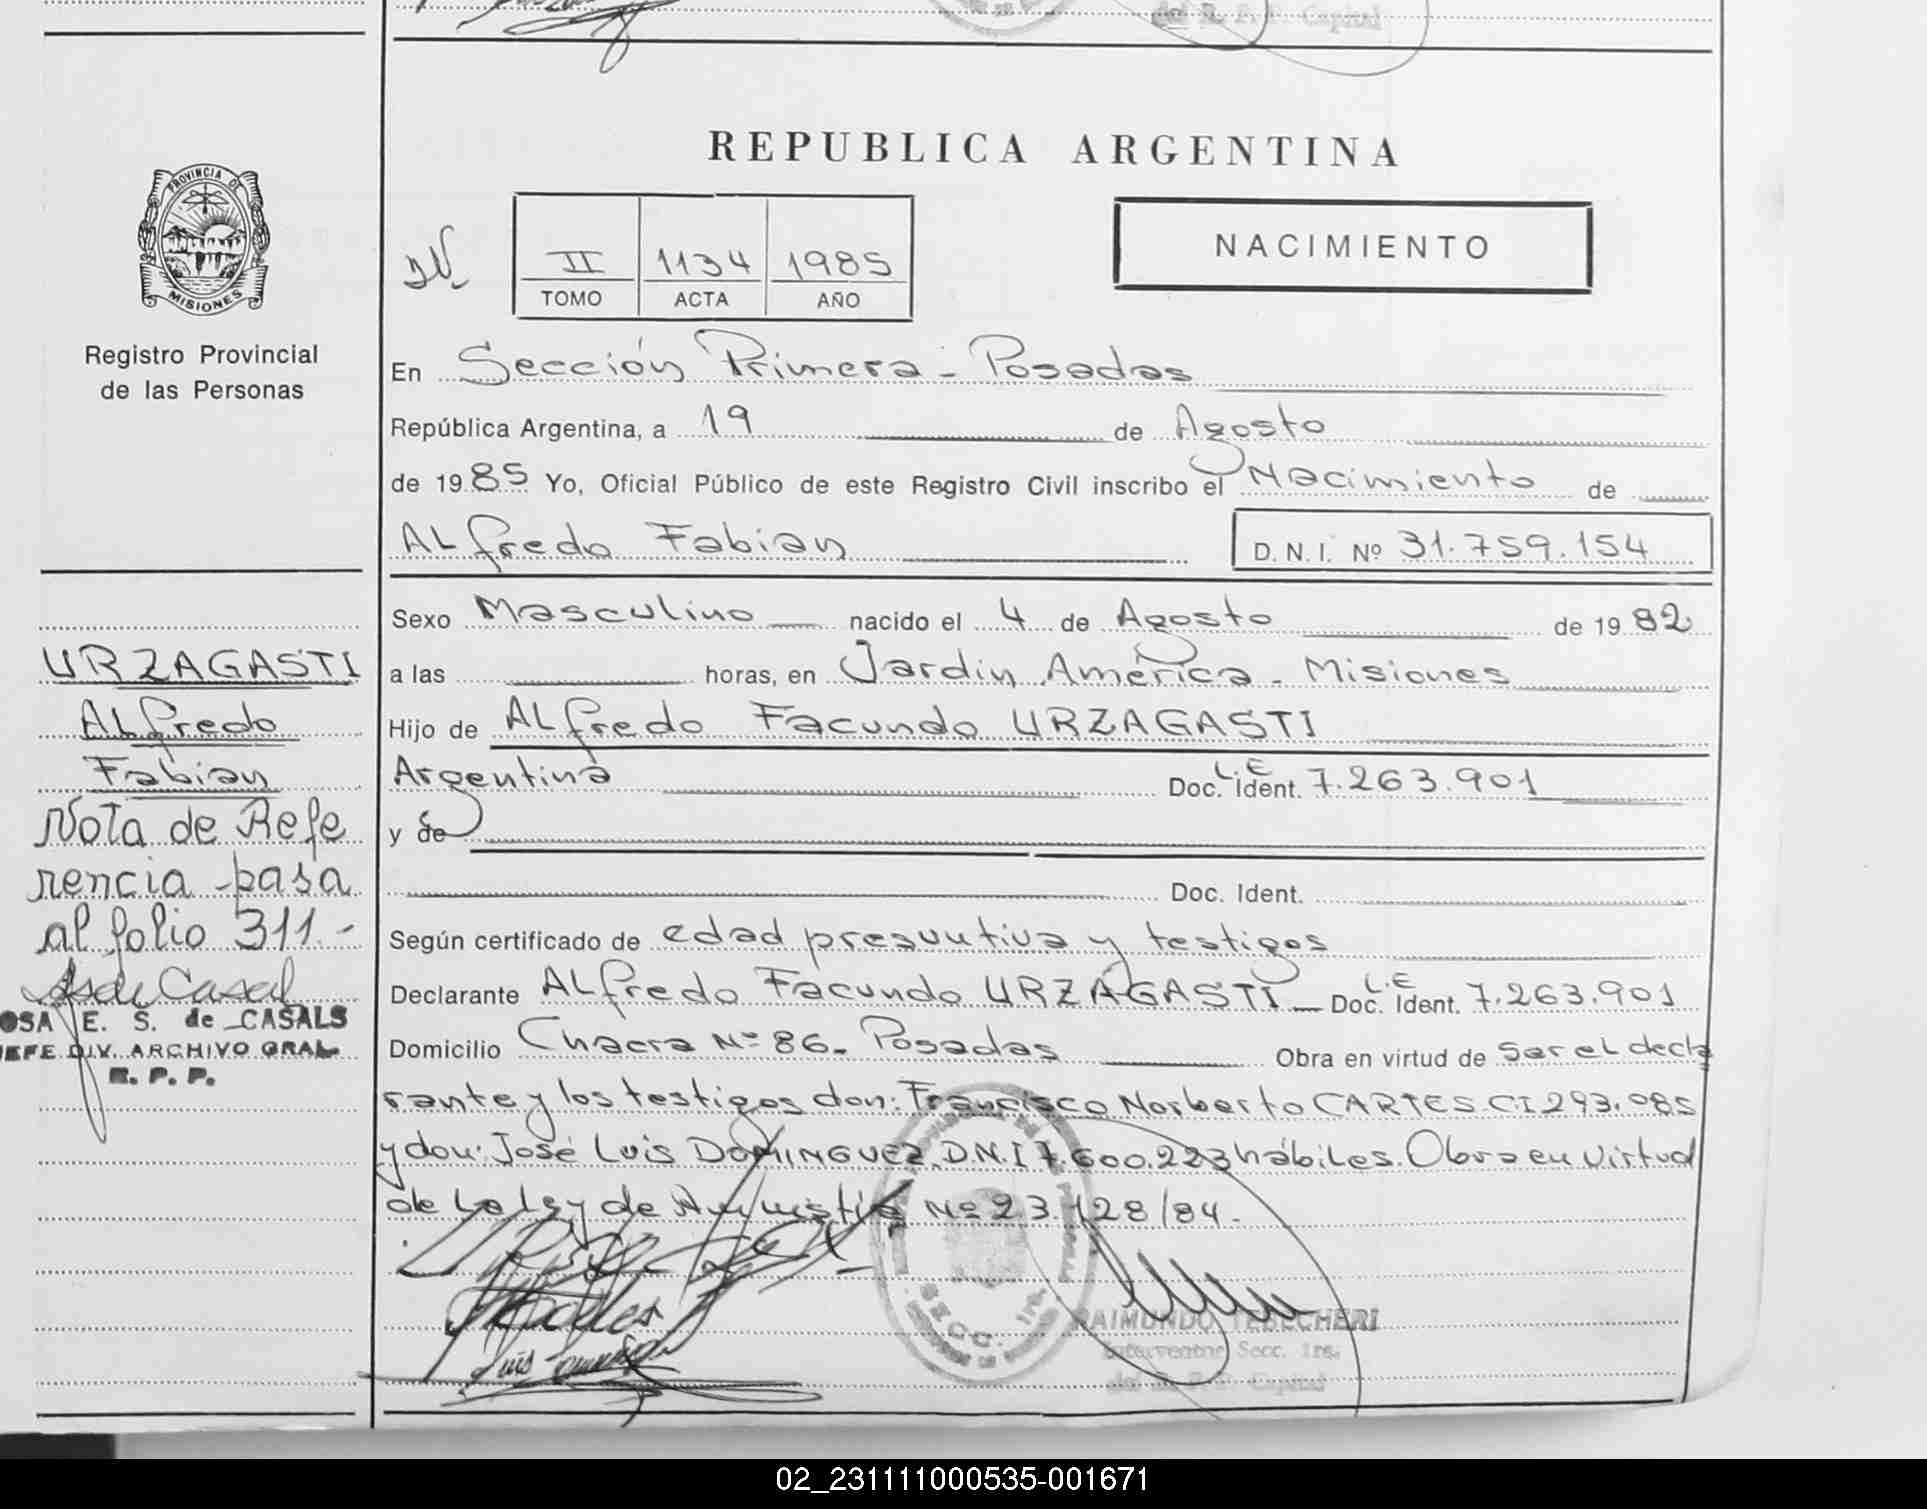 del R. P. P. Capital
REPUBLICA ARGENTINA
PROVINCIA DE
MISIONES
Registro Provincial
de las Personas
II 1134 1985
TOMO ACTA AÑO
NACIMIENTO
En Sección Primera - Posadas
República Argentina, a 19 de Agosto
de 1985 Yo, Oficial Público de este Registro Civil inscribo el Nacimiento de
ALfredo Fabian D.N.I. Nº 31.759.154
Sexo Masculino nacido el 4 de Agosto de 1982
a las horas, en Jardin América - Misiones
Hijo de ALfredo Facundo URZAGASTI
Argentina Doc. Ident. L.E 7.263.901
y de
Doc. Ident.
Según certificado de edad presuntiva y testigos
Declarante ALfredo Facundo URZAGASTI - Doc. Ident. L.E 7.263.901
Domicilio Chacra Nº 86. Posadas Obra en virtud de ser el decla
rante y los testigos don: Francisco Norberto CARTES C.I 293.085
y don: José Luis DOMINGUEZ D.N.I 7.600.223 hábiles. Obra en virtud
de la ley de Amnistia Nº 23.128/84.
URZAGASTI
ALfredo
Fabian
Nota de Refe
rencia pasa
al folio 311.-
OSA E. S. de CASALS
JEFE DIV. ARCHIVO GRAL.
R. P. P.
SECC. 1ra.
RAIMUNDO TEBECHERI
Interventor Secc. 1ra.
del R. P. P. Capital
02_231111000535-001671